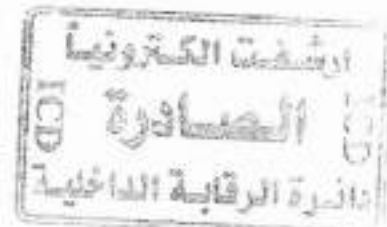 ارشفت الكترونياً
ICD الصادرة ICD
دائرة الرقابة الداخلية